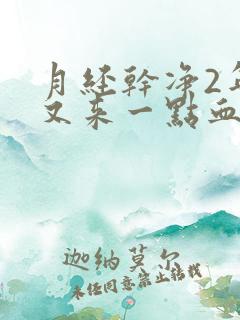 月经幹净2年
又来一點血
迦纳莫尔
未经同意禁止转载